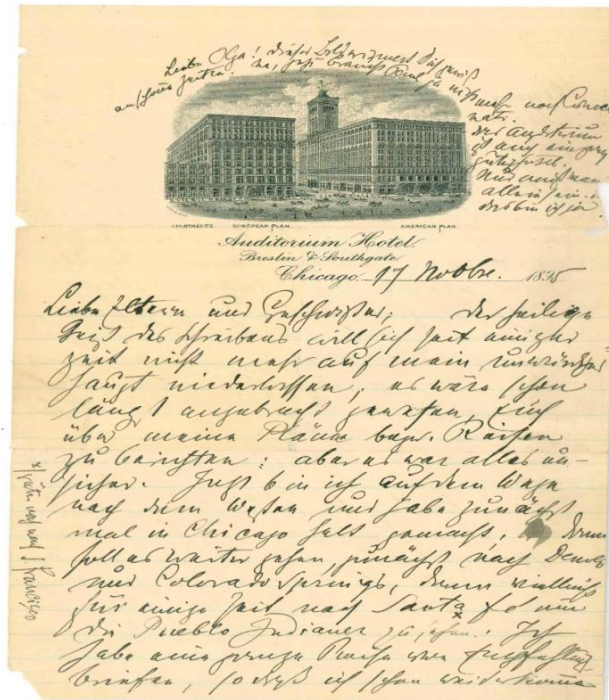 Liebe Olga! dieses Bild
anschauen
APARTMENTS EUROPEAN PLAN. AMERICAN PLAN.
Auditorium Hotel
Breslin & Southgate
Chicago 17 Novbre. 1895
Liebe Eltern und Geschwister; der heilige
Geist des Schreibens will sich seit einiger
Zeit nicht mehr auf mein unwürdiges
Haupt niederlassen, es wäre schon
längst angebracht gewesen, Euch
über meine Pläne bezw. Reisen
zu berichten: aber es war alles un-
sicher. Jetzt bin ich auf dem Wege
nach dem Westen und habe zunächst
mal in Chicago halt gemacht, dann
soll es weiter gehen, zunächst nach Denver
und Colorado Springs, dann vielleicht
für einige Zeit nach Santa Fe um
die Pueblo Indianer zu sehen. Ich
habe eine ganze Reihe von Empfehlungs
briefen, so dass ich schon weiterkomme
x) später noch nach S. Francisco